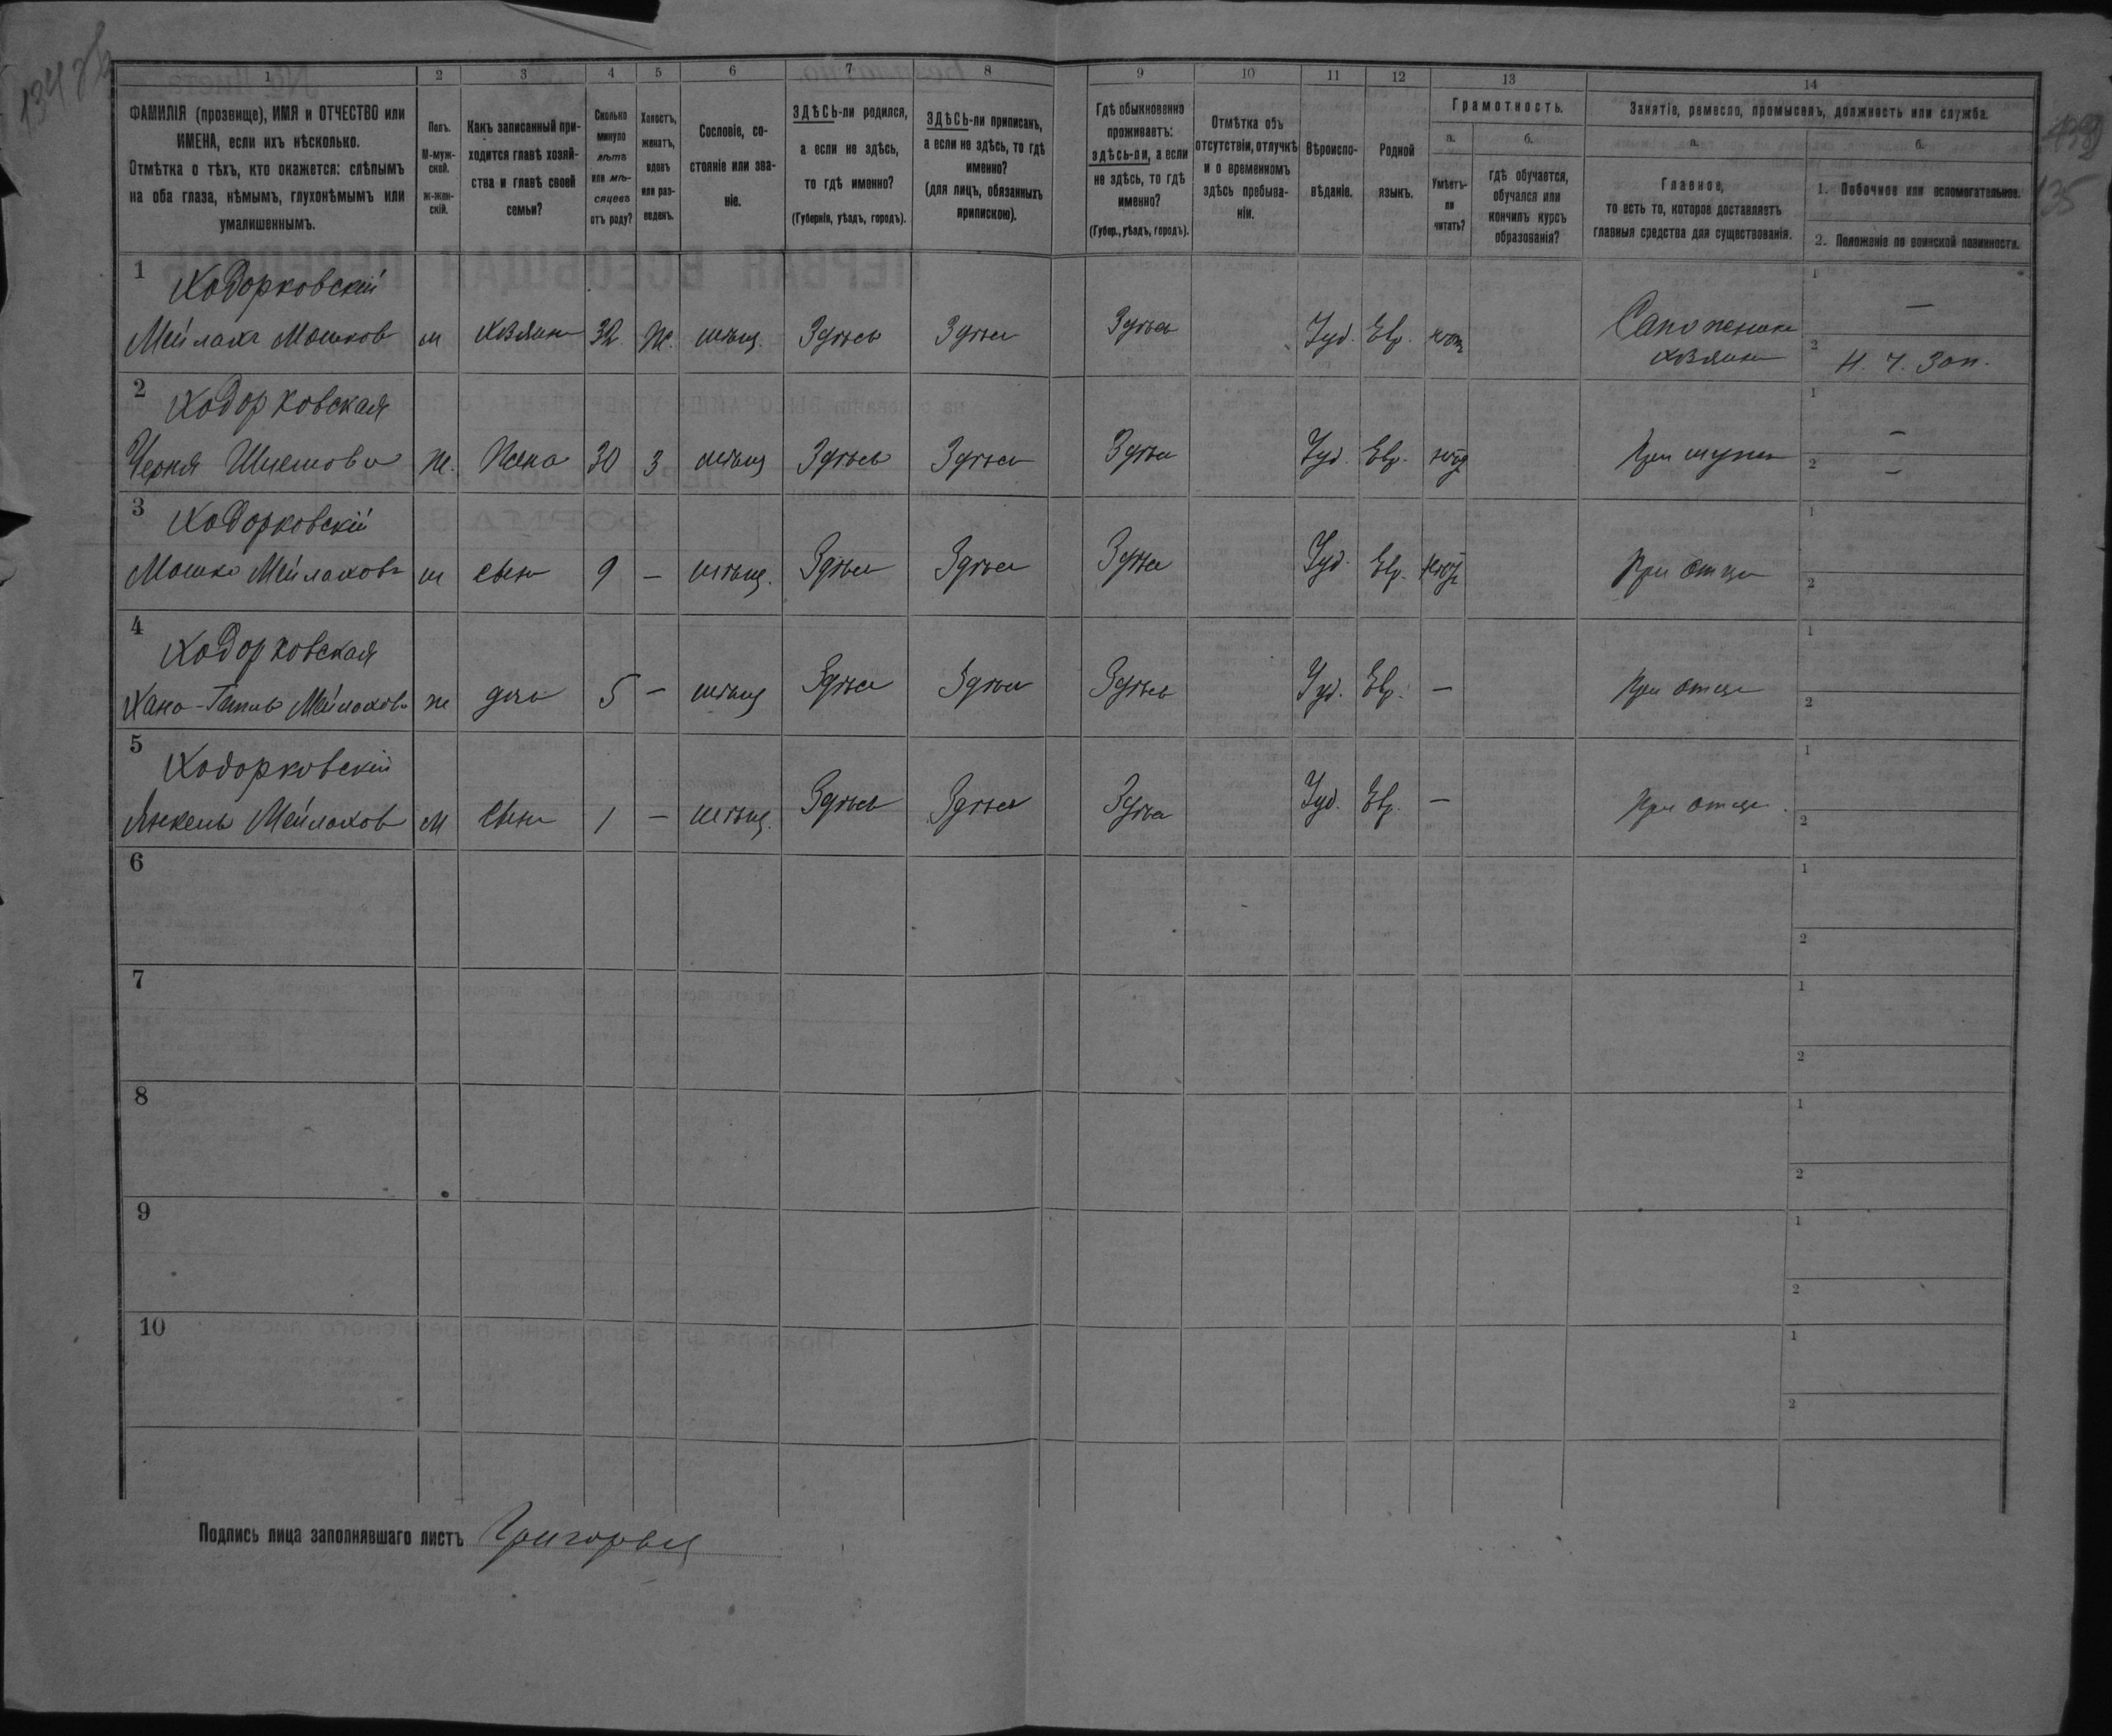 134 об
135
1 2 3 4 5 6 7 8 9 10 11 12 13 14
ФАМИЛІЯ (прозвище), ИМЯ и ОТЧЕСТВО или
ИМЕНА, если ихъ нѣсколько.
Отмѣтка о тѣхъ, кто окажется: слѣпымъ
на оба глаза, нѣмымъ, глухонѣмымъ или
умалишеннымъ.
Полъ.
М-муж-
ской.
ж-жен-
скій.
Какъ записанный при-
ходится главѣ хозяй-
ства и главѣ своей
семьи?
Сколько
минуло
лѣтъ
или мѣ-
сяцевъ
отъ роду?
Холостъ,
женатъ,
вдовъ
или раз-
веденъ.
Сословіе, со-
стояніе или зва-
ніе.
ЗДѢСЬ-ли родился,
а если не здѣсь,
то гдѣ именно?
(Губернія, уѣздъ, городъ).
ЗДѢСЬ-ли приписанъ,
а если не здѣсь, то гдѣ
именно?
(для лицъ, обязанныхъ
припискою).
Гдѣ обыкновенно
проживаетъ:
здѣсь-ли, а если
не здѣсь, то гдѣ
именно?
(Губер., уѣздъ, городъ).
Отмѣтка объ
отсутствіи, отлучкѣ
и о временномъ
здѣсь пребыва-
ніи.
Вѣроиспо-
вѣданіе.
Родной
языкъ.
Грамотность.
а.
Умѣетъ-
ли
читать?
б.
гдѣ обучается,
обучался или
кончилъ курсъ
образованія?
Занятіе, ремесло, промыселъ, должность или служба.
а.
Главное,
то есть то, которое доставляетъ
главныя средства для существованія.
б.
1. Побочное или вспомогательное.
2. Положеніе по воинской повинности.
1 Ходорковскій
Мейлахъ Мошков м хозяин 32 ж. мѣщ. Здѣсь Здѣсь Здѣсь Іуд. Евр. Сапожник
хозяин
1 —
2 Н. Ч. Зап.
2 Ходорковская
Черня Шлемова ж. Жена 30 З мѣщ Здѣсь Здѣсь Здѣсь Іуд. Евр. При мужѣ
1 —
2 —
3 Ходорковскій
Мошко Мейлаховъ м сынъ 9 — мѣщ. Здѣсь Здѣсь Здѣсь Іуд. Евр. При отцѣ
1
2
4 Ходорковская
Хана- Мейлахова ж дочь 5 — мѣщ Здѣсь Здѣсь Здѣсь Іуд. Евр. — При отцѣ
1
2
5 Ходорковскій
Янкель Мейлахов м Сынъ 1 — мѣщ. Здѣсь Здѣсь Здѣсь Іуд. Евр. — При отцѣ.
1
2
6
1
2
7
1
2
8
1
2
9
1
2
10
1
2
Подпись лица заполнявшаго листъ